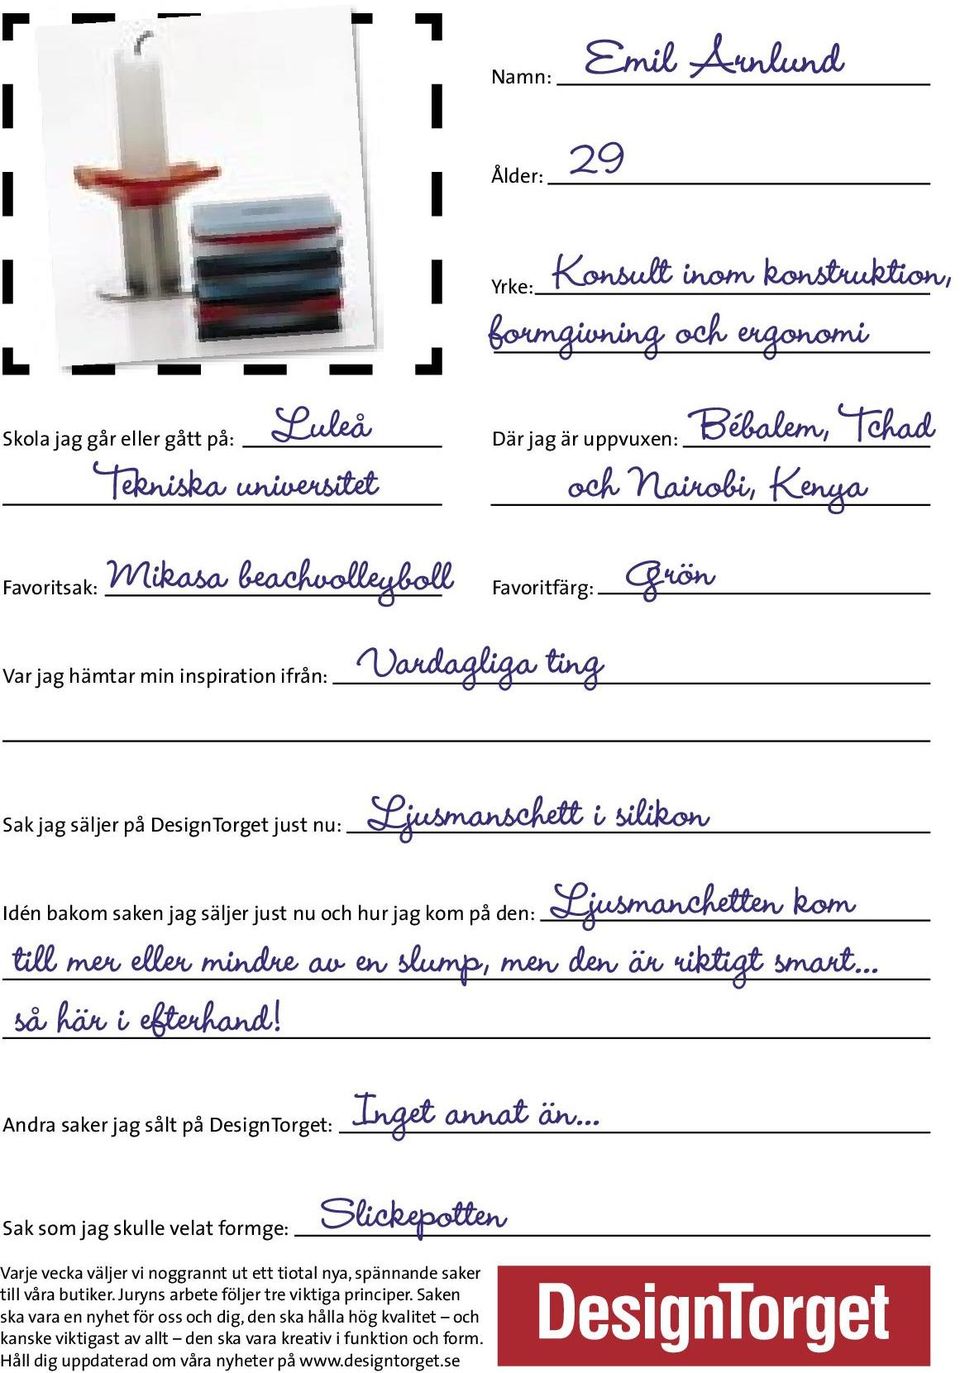 Namn: Emil Arnlund
Ålder: 29
Yrke: Konsult inom konstruktion,
formgivning och ergonomi
Skola jag går eller gått på: Luleå
Tekniska universitet
Där jag är uppvuxen: Bébalem, Tchad
och Nairobi, Kenya
Favoritsak: Mikasa beachvolleyboll
Favoritfärg: Grön
Var jag hämtar min inspiration ifrån: Vardagliga ting
Sak jag säljer på DesignTorget just nu: Ljusmanschett i silikon
Idén bakom saken jag säljer just nu och hur jag kom på den: Ljusmanchetten kom
till mer eller mindre av en slump, men den är riktigt smart...
så här i efterhand!
Andra saker jag sålt på DesignTorget: Inget annat än...
Sak som jag skulle velat formge: Slickepotten
Varje vecka väljer vi noggrannt ut ett tiotal nya, spännande saker
till våra butiker. Juryns arbete följer tre viktiga principer. Saken
ska vara en nyhet för oss och dig, den ska hålla hög kvalitet – och
kanske viktigast av allt – den ska vara kreativ i funktion och form.
Håll dig uppdaterad om våra nyheter på www.designtorget.se
DesignTorget